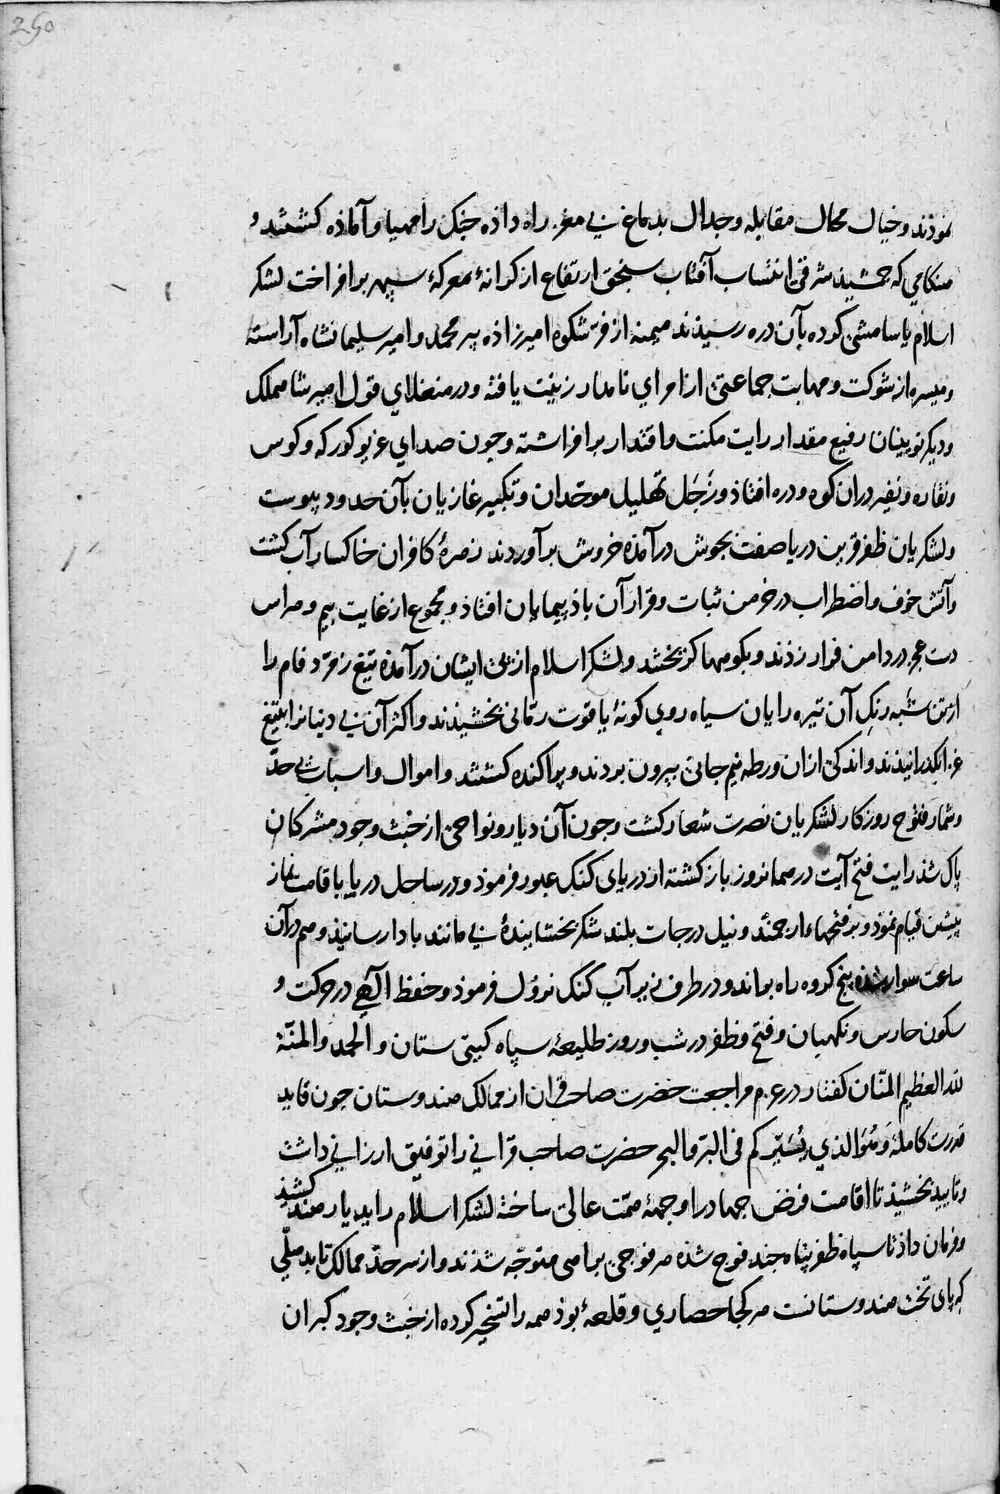 250
نموذند و خیال محال مقابله و جدال بدماغ بی مغز راه داذه جنک را مهیا و آماذه کشتند و
هنکامی که جمشید شرقی انتساب آفتاب سنجق ارتفاع از کرانهٔ معرکهٔ سپهر برافراخت لشکر
اسلام یاسامشی کرده بآن دره رسیذند میمنه از فرّ شکوه امیرزاذه پیر محمد و امیر سلیمانشاه آراسته
و میسره از شوکت و مهابت جماعتی از امرای نامدار زینت یافته و در منغلای قول امیر شاهملک
و دیکر نویینان رفیع مقدار رایت مکنت و اقتدار برافراشته و جون صدای غریو کورکه و کوس
و نقاره و نفیر در ان کوه و دره افتاذ و زَجَل تهلیل موحّدان و تکبیر غازیان بآن حدود پیوست
و لشکریان ظفر قرین دریا صفت بجوش درآمذه خروش برآوردند زهرهٔ کافران خاکسار آب کشت
و آتش خوف و اضطراب در خرمن ثبات و قرار آن باذ پیمایان افتاذ و مجموع از غایت بیم و هراس
دست عجز در دامن فرار زذند و بکوهها کریختند و لشکر اسلام از پی ایشان درآمذه تیغ زمرّد فام را
از تن شبه رنک آن تیره رایان سیاه روی کونهٔ یاقوت رمّانی بخشیذند و اکثر آن بی دینانرا بتیغ
غزا بکذرانیذند و اندکی ازان ورطه نیم جانی بیرون بردند و پراکنده کشتند و اموال و اسباب بی حدّ
و شمار فتوح روزکار لشکریان نصرت شعار کشت و جون آن دیار و نواحی از خبث وجود مشرکان
پاک شذ رایت فتح آیت در همانروز بازکشته از دریای کنک عبور فرموذ و در ساحل دریا باقامت نماز
پیشین قیام نموذ و بر فتحهاء ارجمند و نیل درجات بلند شکر بخشایندهٔ بی مانند بادا رسانیذ و هم در آن
ساعت سوار شذه پنج کروه راه براند و در طرف زیر آب کنک نزول فرموذ و حفظ الٓهی در حرکت و
سکون حارس و نکهبان و فتح و ظفر در شب و روز طلیعهٔ سپاه کیتی ستان و الحمد و المنّة
لله العظیم المنّان کفتار در عزم مراجعت حضرت صاحب قران از ممالک هندوستان جون قاید
قدرت کاملهٔ وَ هُوَ الذی یُسَیّرکم فی البرّ و البحر حضرت صاحب قرانی را توفیق ارزانی داشت
و تایید بخشیذ تا اقامت فرض جهاد را وجههٔ همّت عالی ساخته لشکر اسلام را بدیار هند کشیذ
و فرمان داذ تا سپاه ظفر پناه جند فوج شذه هر فوجی براهی متوجّه شذند و از سر حدّ ممالک تا بدهلی
که پای تخت هندوستانست هر کجا حصاری و قلعهٔ بوذ همه را تسخیر کرده از خبث وجود کبران